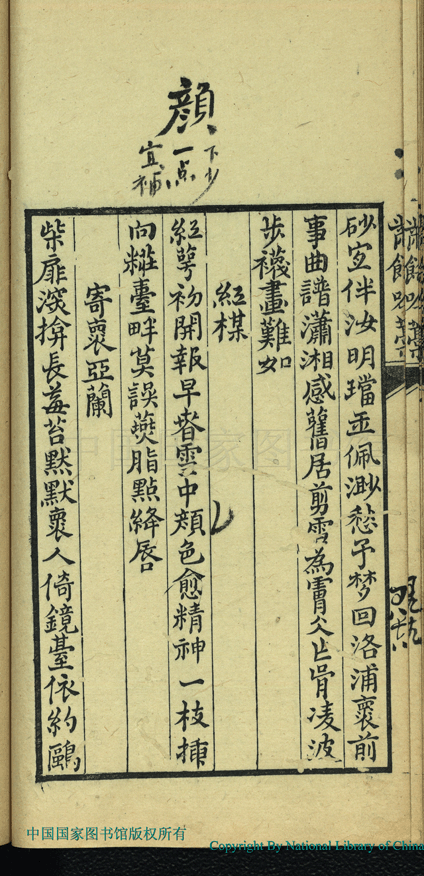 顔
下少
一点
宜補
砂定伴汝明璫玉佩渺愁予梦回洛浦裏前
事曲譜瀟湘感舊居剪雪為膚父作骨凌波
步襪畫難如
紅楳
紅萼初開報早春雲中頬色愈精神一枝挿
向糚臺畔莫誤燕脂點絳唇
寄裏亞蘭
柴扉淡揜長莓苔黙默裏人倚鏡臺依約鷗
詩餘
中国国家图书馆版权所有
Copyright By National Library of China